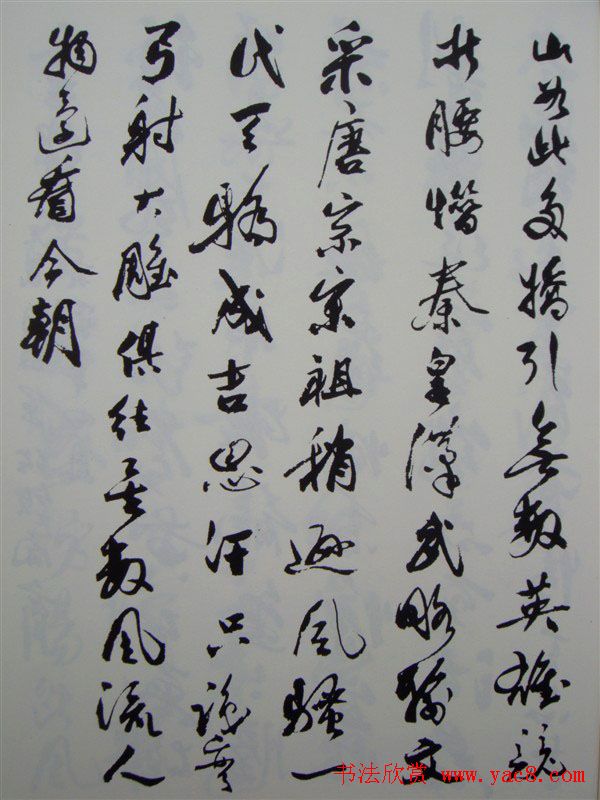 山如此多嬌引無数英雄競
折腰惜秦皇漢武略輸文
采唐宗宋祖稍遜風騷一
代天驕成吉思汗只識彎
弓射大雕俱往矣数風流人
物還看今朝
书法欣赏 www.yac8.com